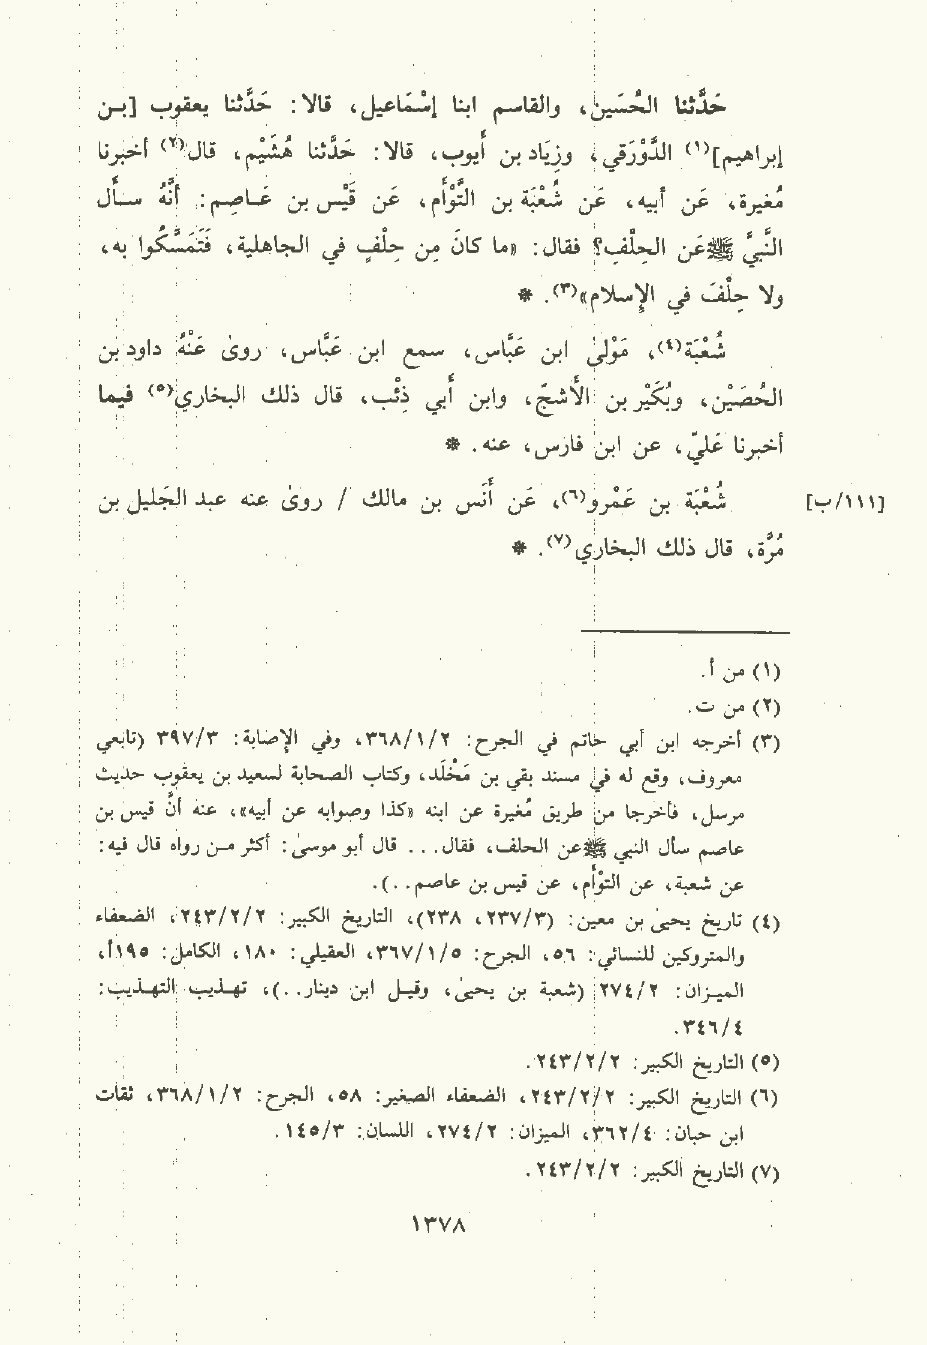 حَدَّثنا الحُسَين، والقاسم ابنا إسْمَاعيل، قالا: حَدَّثنا يعقوب [بن
إبراهيم](١) الدَّوْرَقي، وزِيَاد بن أيوب، قالا: حَدَّثنا هُشَيْم، قال(٢): أخبرنا
مُغيرة، عَن أبيه، عَن شُعْبَة بن التَّوْأم، عَن قَيْس بن عَاصِم: أنَّهُ سأل
النَّبيَّ ﷺ عَن الحِلْفِ؟ فقال: «ما كانَ مِن حِلْفٍ في الجاهلية، فَتَمَسَّكُوا به،
ولا حِلْفَ في الإسلام»(٣). *
شُعْبَة(٤)، مَوْلىٰ ابن عَبَّاس، سمع ابن عَبَّاس، روىٰ عَنْهُ داود بن
الحُصَيْن، وبُكَيْر بن الأشجّ، وابن أبي ذِئْب، قال ذلك البخاري(٥) فيما
أخبرنا عَليّ، عن ابن فارس، عنه. *
[١١١/ب] شُعْبَة بن عَمْرو(٦)، عَن أنَس بن مالك / روىٰ عنه عبد الجَليل بن
مُرَّة، قال ذلك البخاري(٧). *
(١) من أ.
(٢) من ت.
(٣) أخرجه ابن أبي حاتم في الجرح: ٣٦٨/١/٢، وفي الإصابة: ٣٩٧/٣ (تابعي
معروف، وقع له في مسند بقي بن مَخْلَد، وكتاب الصحابة لسعيد بن يعقوب حديث
مرسل، فأخرجا من طريق مُغيرة عن ابنه «كذا وصوابه عن أبيه»، عنه أنَّ قيس بن
عاصم سأل النبي ﷺ عن الحلف، فقال... قال أبو موسىٰ: أكثر من رواه قال فيه:
عن شعبة، عن التوْأم، عن قيس بن عاصم..).
(٤) تاريخ يحيىٰ بن معين: (٢٣٧/٣، ٢٣٨)، التاريخ الكبير: ٢٤٣/٢/٢، الضعفاء
والمتروكين للنسائي: ٥٦، الجرح: ٣٦٧/١/٥، العقيلي: ١٨٠، الكامل: ١٩٥أ،
الميزان: ٢٧٤/٢ (شعبة بن يحيىٰ، وقيل ابن دينار..)، تهذيب التهذيب:
٣٤٦/٤.
(٥) التاريخ الكبير: ٢٤٣/٢/٢.
(٦) التاريخ الكبير: ٢٤٣/٢/٢، الضعفاء الصغير: ٥٨، الجرح: ٣٦٨/١/٢، ثقات
ابن حبان: ٣٦٢/٤، الميزان: ٢٧٤/٢، اللسان: ١٤٥/٣.
(٧) التاريخ الكبير: ٢٤٣/٢/٢.
١٣٧٨